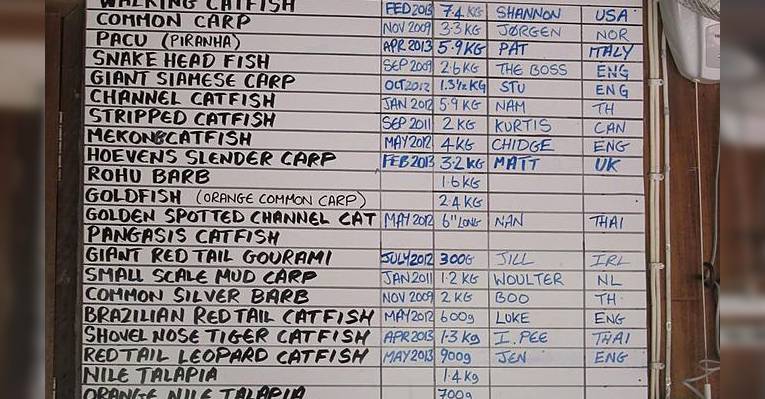 WALKING CATFISH FEB 2013 7.4 KG SHANNON USA
COMMON CARP NOV 2009 3.3 KG JØRGEN NOR
PACU (PIRANHA) APR 2013 5.9 KG PAT ITALY
SNAKE HEAD FISH SEP 2009 2.6 KG THE BOSS ENG
GIANT SIAMESE CARP OCT 2012 1.3½ KG STU ENG
CHANNEL CATFISH JAN 2012 5.9 KG NAM TH
STRIPPED CATFISH SEP 2011 2 KG KURTIS CAN
MEKONG CATFISH MAY 2012 4 KG CHIDGE ENG
HOEVENS SLENDER CARP FEB 2013 3.2 KG MATT UK
ROHU BARB 1.6 KG
GOLDFISH (ORANGE COMMON CARP) 2.4 KG
GOLDEN SPOTTED CHANNEL CAT MAY 2012 6" LONG NAN THAI
PANGASIS CATFISH
GIANT RED TAIL GOURAMI JULY 2012 300G JILL IRL
SMALL SCALE MUD CARP JAN 2011 1.2 KG WOULTER NL
COMMON SILVER BARB NOV 2009 2 KG BOO TH
BRAZILIAN RED TAIL CATFISH MAY 2012 600g LUKE ENG
SHOVEL NOSE TIGER CATFISH APR 2013 1.3 Kg I.PEE THAI
RED TAIL LEOPARD CATFISH MAY 2013 900g JEN ENG
NILE TALAPIA 1.4 Kg
ORANGE NILE TALAPIA 700g